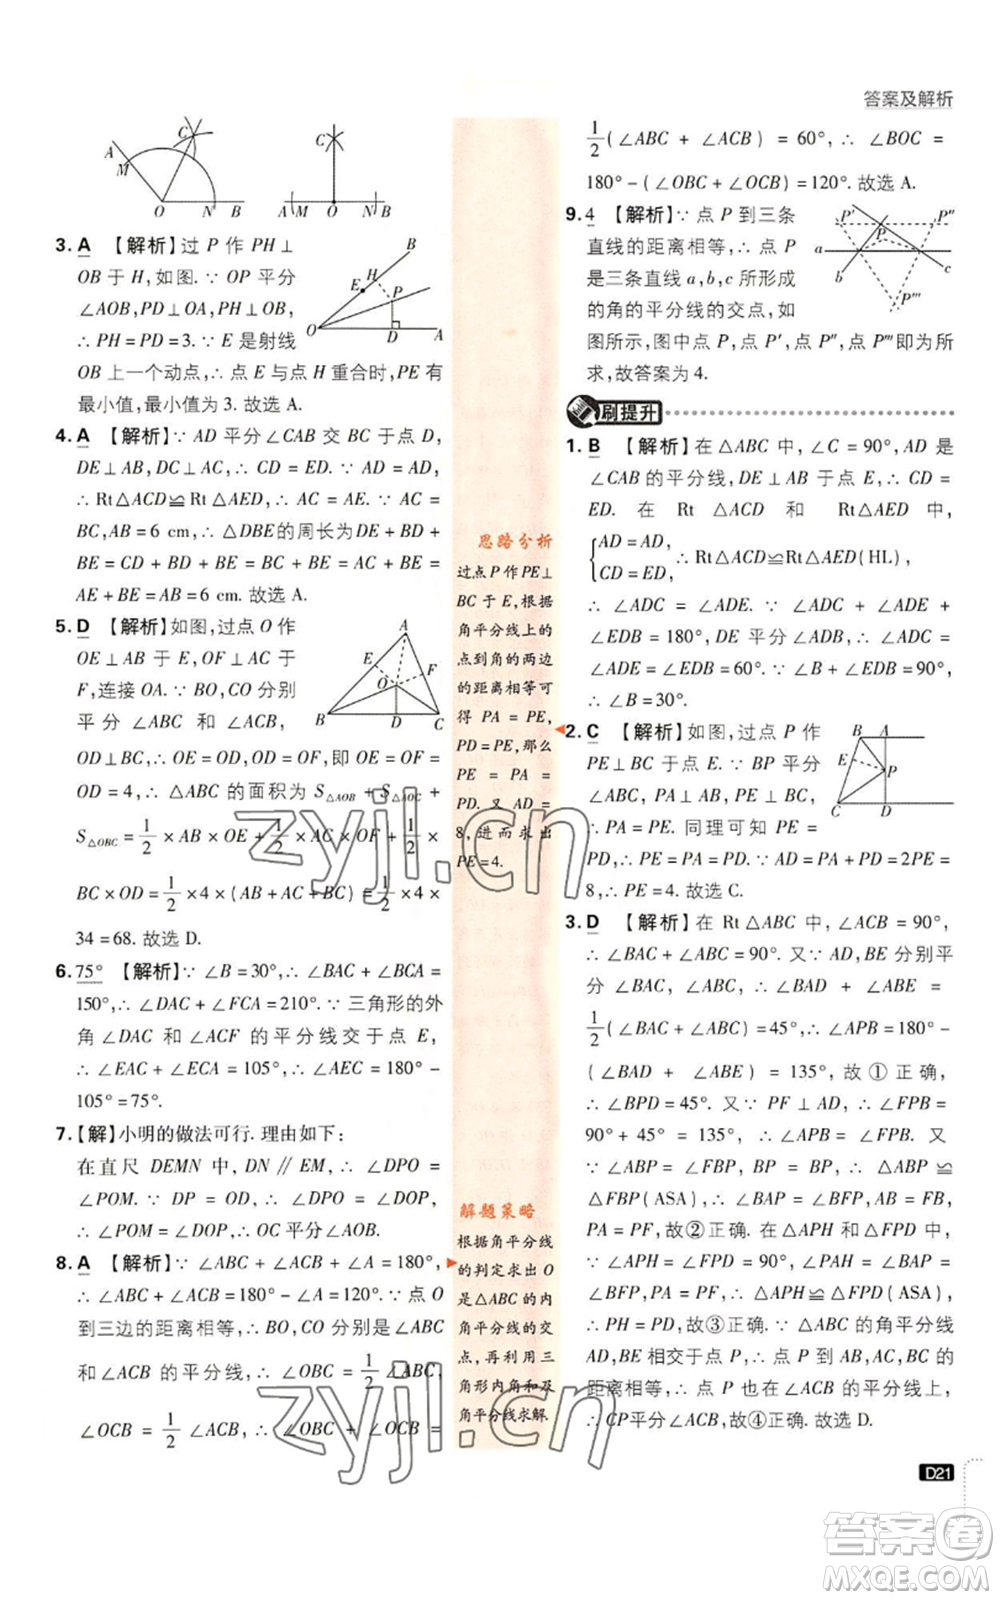 答案及解析
A
M
C
O
N
B
C
A
M
O
N
B
3. A 【解析】过 P 作 PH⊥
OB 于 H,如图. ∵ OP 平分
∠AOB,PD⊥OA,PH⊥OB,
∴ PH=PD=3. ∵ E 是射线
OB 上一个动点,∴ 点 E 与点 H 重合时,PE 有
最小值,最小值为 3. 故选 A.
B
H
E
P
O
D
A
4. A 【解析】∵ AD 平分∠CAB 交 BC 于点 D,
DE⊥AB,∠C=90°,∴ CD=ED. ∵ AD=AD,
∴ Rt△ACD≌Rt△AED,∴ AC=AE. ∵ AC=
BC,AB=6 cm,∴ △DBE的周长为DE+BD+
BE=CD+BD+BE=BC+BE=AC+BE=
AE+BE=AB=6 cm. 故选 A.
5. D 【解析】如图,过点 O 作
OE⊥AB 于 E,OF⊥AC 于
F,连接 OA. ∵ BO,CO 分别
平分∠ABC 和∠ACB,
OD⊥BC,∴ OE=OD,OD=OF,即 OE=OF=
OD=4,∴ △ABC 的面积为 S△AOB + S△AOC +
S△OBC = 1/2 × AB × OE + 1/2 × AC × OF + 1/2 ×
BC×OD=1/2×4×(AB+AC+BC)=1/2×4×
34=68. 故选 D.
A
E
F
O
B
D
C
6. 75° 【解析】∵ ∠B=30°,∴ ∠BAC+∠BCA=
150°,∴ ∠DAC+∠FCA=210°. ∵ 三角形的外
角∠DAC 和∠ACF 的平分线交于点 E,
∴ ∠EAC+∠ECA=105°,∴ ∠AEC=180°-
105°=75°.
7.【解】小明的做法可行. 理由如下:
在直尺 DEMN 中,DN∥EM,∴ ∠DPO=
∠POM. ∵ DP=OD,∴ ∠DPO=∠DOP,
∴ ∠POM=∠DOP,∴ OC 平分∠AOB.
8. A 【解析】∵ ∠ABC+∠ACB+∠A=180°,
∴ ∠ABC+∠ACB=180°-∠A=120°. ∵ 点 O
到三边的距离相等,∴ BO,CO 分别是∠ABC
和∠ACB 的平分线,∴ ∠OBC=1/2∠ABC,
∠OCB=1/2∠ACB,∴ ∠OBC+∠OCB=
思路分析
过点P作PE⊥
BC于E,根据
角平分线上的
点到角的两边
的距离相等可
得 PA=PE,
PD=PE,那么
PE=PA=
PD. 又 AD=
8,进而求出
PE=4.
解题策略
根据角平分线
的判定求出 O
是△ABC的内
角平分线的交
点,再利用三
角形内角和及
角平分线求解.
1/2(∠ABC+∠ACB)=60°,∴ ∠BOC=
180°-(∠OBC+∠OCB)=120°. 故选 A.
9. 4 【解析】∵ 点 P 到三条
直线的距离相等,∴ 点 P
是三条直线 a,b,c 所形成
的角的平分线的交点,如
图所示,图中点 P,点 P′,点 P″,点 P‴即为所
求,故答案为 4.
P′
P″
P
a
b
c
P‴
刷提升
1. B 【解析】在△ABC 中,∠C=90°,AD 是
∠CAB 的平分线,DE⊥AB 于点 E,∴ CD=
ED. 在 Rt△ACD 和 Rt△AED 中,
{AD=AD,
CD=ED, ∴ Rt△ACD≌Rt△AED(HL),
∴ ∠ADC=∠ADE. ∵ ∠ADC+∠ADE+
∠EDB=180°,DE 平分∠ADB,∴ ∠ADC=
∠ADE=∠EDB=60°. ∵ ∠B+∠EDB=90°,
∴ ∠B=30°.
2. C 【解析】如图,过点 P 作
PE⊥BC 于 E. ∵ BP 平分
∠ABC,PA⊥AB,PE⊥BC,
∴ PA=PE. 同理可知 PE=
PD,∴ PE=PA=PD. ∴ AD=PA+PD=2PE=
8,∴ PE=4. 故选 C.
B
A
E
P
C
D
3. D 【解析】在 Rt△ABC 中,∠ACB=90°,
∴ ∠BAC+∠ABC=90°. ∵ AD,BE 分别平
分∠BAC,∠ABC,∴ ∠BAD+∠ABE=
1/2(∠BAC+∠ABC)=45°,∴ ∠APB=180°-
(∠BAD+∠ABE)=135°,故①正确.
∴ ∠BPD=45°. 又∵ PF⊥AD,∴ ∠FPB=
90°+45°=135°,∴ ∠APB=∠FPB. 又
∵ ∠ABP=∠FBP,BP=BP,∴ △ABP≌
△FBP(ASA),∴ ∠BAP=∠BFP,AB=FB,
PA=PF,故②正确. 在△APH 和△FPD 中,
∵ ∠APH=∠FPD=90°,∠PAH=∠BAP=
∠BFP,PA=PF,∴ △APH≌△FPD(ASA),
∴ PH=PD,故③正确. ∵ △ABC 的角平分线
AD,BE 交于点 P,∴ 点 P 到 AB,AC,BC 的
距离相等,∴ 点 P 也在∠ACB 的平分线上,
∴ CP平分∠ACB,故④正确. 故选 D.
D21
zyjl.cn
zyjl.cn
答案卷
MXQE.COM